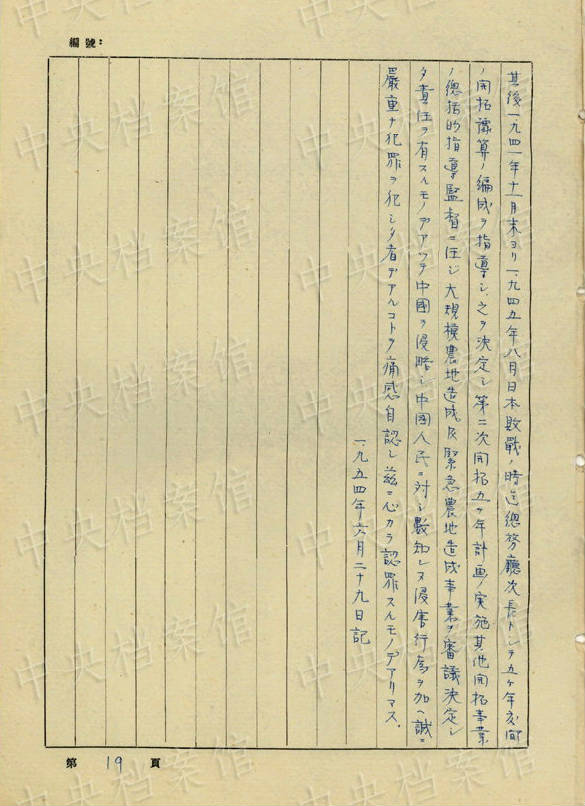 編號：
其後一九四一年十一月末ヨリ一、九四五年八月日本敗戰ノ時迄總務廳次長トシテ五ヶ年間
ノ開拓豫算ノ編成ヲ指導シ、之ヲ決定シ第二次開拓五ヶ年計画ノ実施其他開拓事業
ノ總括的指導監督ニ任ジ大規模農地造成及緊急農地造成事業ヲ審議決定シ
タ責任ヲ有スルモノデアツテ中國ヲ侵略シ中國人民ニ対シ數知レヌ侵害行為ヲ加ヘ誠ニ
嚴重ナ犯罪ヲ犯シタ者デアルコトヲ痛感自認シ茲ニ心カラ認罪スルモノデアリマス.
一、九五四年六月二十九日記
第 19 頁
中央档案馆